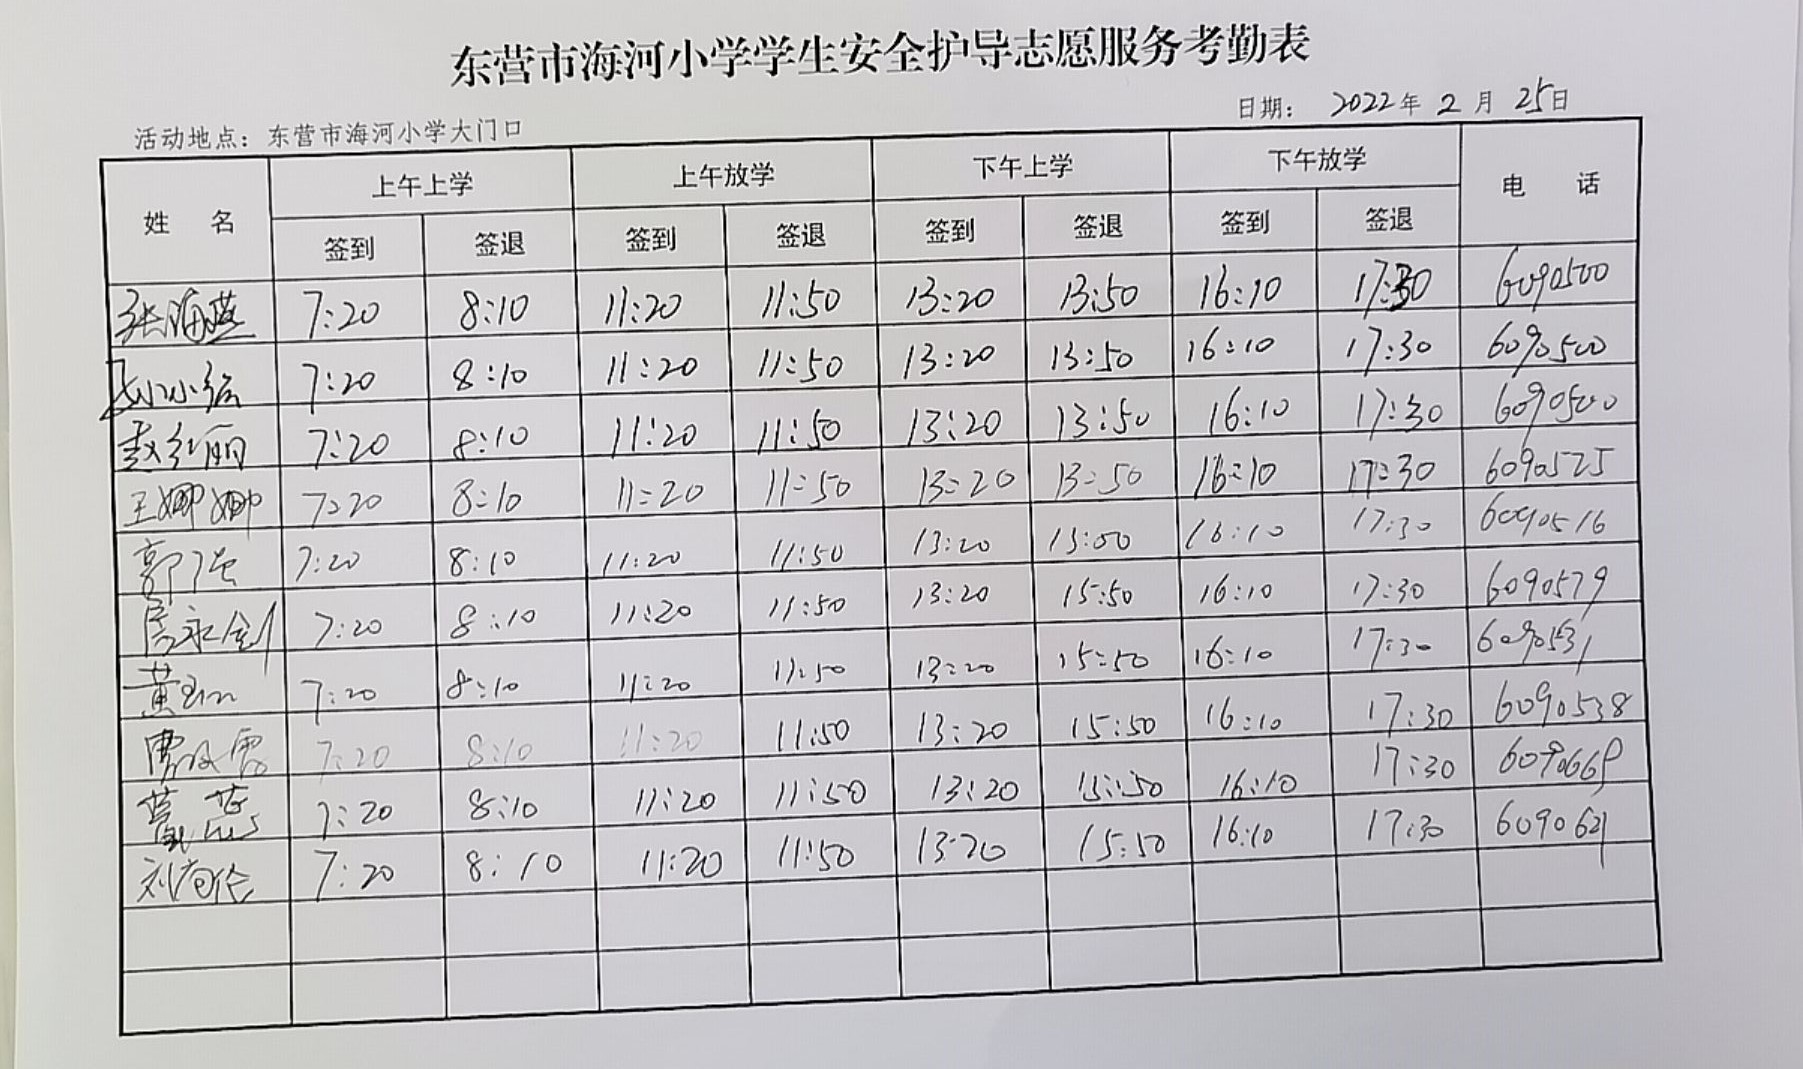 东营市海河小学学生安全护导志愿服务考勤表
日期： 2022年 2 月 25日
活动地点：东营市海河小学大门口
姓 名 上午上学 上午放学 下午上学 下午放学 电 话
签到 签退 签到 签退 签到 签退 签到 签退
张海燕 7:20 8:10 11:20 11:50 13:20 13:50 16:10 17:30 6090500
7:20 8:10 11:20 11:50 13:20 13:50 16:10 17:30 6090500
赵红丽 7:20 8:10 11:20 11:50 13:20 13:50 16:10 17:30 6090500
王娜娜 7:20 8:10 11:20 11:50 13:20 13:50 16:10 17:30 6090525
郭 7:20 8:10 11:20 11:50 13:20 16:10 17:30 6090516
7:20 8:10 11:20 11:50 13:20 15:50 16:10 17:30 6090579
黄 7:20 8:10 11:20 11:50 13:20 15:50 16:10 17:30 6090531
7:20 8:10 11:20 11:50 13:20 15:50 16:10 17:30 6090538
7:20 8:10 11:20 11:50 13:20 15:50 16:10 17:30
刘 7:20 8:10 11:20 11:50 13:20 15:50 16:10 17:30 6090621